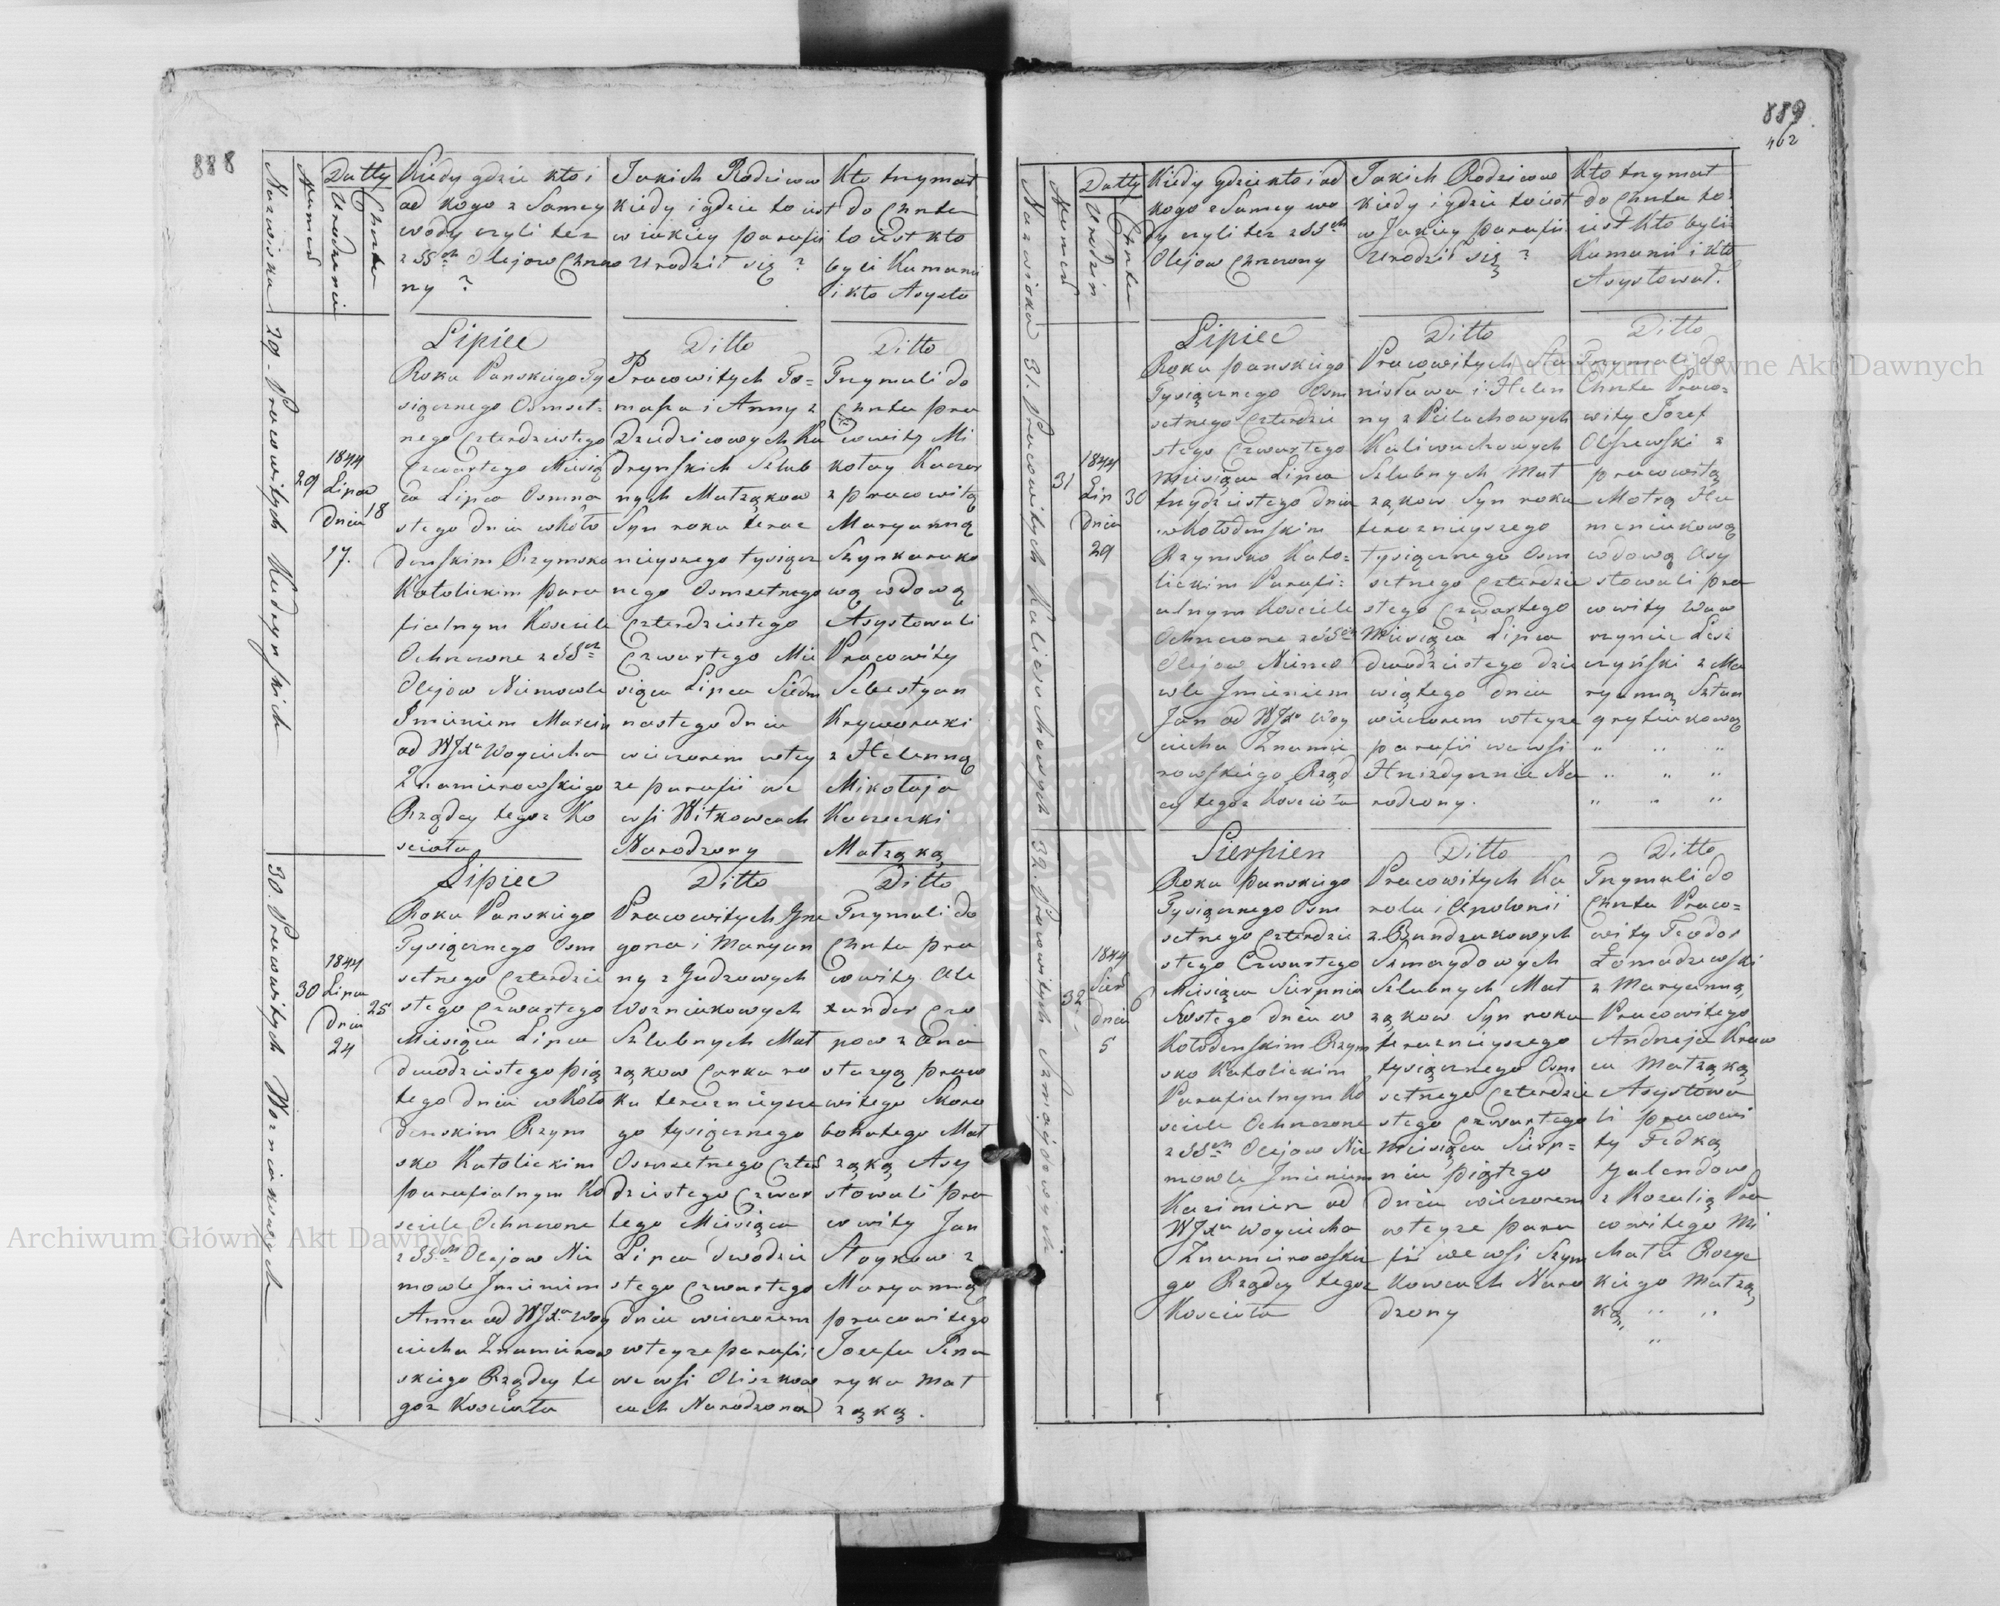 888
Nazwiska
Numer
Datty
Urodzenia
Chrztu
Kiedy gdzie kto i
od kogo z Samey
wody czyli też
z SSch Olejow Chrzczo
ny ?
Jakich Rodzicow
kiedy i gdzie to iest
w iakiey parafii
Urodził się ?
Kto trzymał
do Chrztu
to iest kto
byli Kumami
i kto Asysto
29. Pracowitych Kedrynskich
29
1844
Lipca
dnia
17.
18
Lipiec
Roku Panskiego Ty
siącznego Osmset-
nego Czterdziestego
Czwartego Miesią
ca Lipca Osmna
stego dnia w Koło
denskim Rzymsko
Katolickim para
fialnym Kosciele
Ochrzczone z SSch
Olejow Niemowle
Imieniem Marcin
od WJXa Woyciecha
Znamierowskiego
Rządcy tegoż Ko
scioła
Ditto
Pracowitych To=
masza i Anny z
Dziedzicowych Ke
drynskich Szlub
nych Małżąkow
Syn roku teraz
nieyszego tysiącz
nego Osmsetnego
Czterdziestego
Czwartego Mie
siąca Lipca Siedm
nastego dnia
wieczorem w tey
że parafii we
wsi Witkowcach
Narodzony
Ditto
Trzymali do
Chrztu pra
cowity Mi
kołay Kaczor
z pracowitą
Maryanną
Szynkaruko
wą wdową
Asystowali
Pracowity
Sebestyan
Kryworucki
z Helenną
Mikołaja
Kaczurki
Małżąką
30. Pracowitych Wozniakowych
30
1844
Lipca
Dnia
24
25
Lipiec
Roku Panskiego
Tysiącznego Osm
setnego Czterdzie
stego Czwartego
Miesiąca Lipca
dwodziestego pią
tego dnia w Koło
denskim Rzym
sko Katolickim
parafialnym Ko
sciele Ochrzczone
z SSch Olejow Nie
mowle Imieniem
Anna od WJXa Woy
ciecha Znamierow
skiego Rządcy te
goż Koscioła
Ditto
Pracowitych Grze
gorza i Maryan
ny z Gudzowych
Wozniakowych
Szlubnych Mał
żąkow Corka ro
ku teraznieysze
go tysiącznego
Osmsetnego Czter
dziestego Czwar
tego Miesiąca
Lipca dwodzie
stego Czwartego
dnia wieczorem
w teyże parafii
we wsi Oliszkow
cach Narodzona
Ditto
Trzymali do
Chrztu pra
cowity Ale
xander Czo
pow z Ana
stazyą praco
witego Skoro
bohatego Mał
żąką Asy
stowali pra
cowity Jan
Stoykow z
Maryanną
pracowitego
Jozefa Pina
ryka Mał
żąką.
889
462
Nazwiska
Numer
Datty
Urodzin
Chrztu
Kiedy gdzie kto i od
kogo z Samey wo
dy czyli też z SSch
Olejow Chrzczony
Jakich Rodzicow
kiedy i gdzie to iest
w Jakiey parafii
Urodził się ?
Kto trzymał
do Chrztu to
iest Kto byli
Kumami i kto
Asystował.
31. Pracowitych Kaliwuchowych
31
1844
Lip
dnia
29
30
Lipiec
Roku panskiego
Tysiącznego Osm
setnego Czterdzie
stego Czwartego
Miesiąca Lipca
trzydziestego dnia
w Kołodenskim
Rzymsko Kato=
lickim Parafi=
alnym Kosciele
Ochrzczone z SSch
Olejow Niemo
wle Imieniem
Jan od WJXa Woy
ciecha Znamie
rowskiego Rząd
cy tegoż Kosciola
Ditto
Pracowitych Sta
nisława i Helen
ny z Pieluchowych
Kaliwuchowych
Szlubnych Mał
żąkow Syn roku
teraznieyszego
tysiącznego Osm
setnego Czterdzie
stego Czwartego
Miesiąca Lipca
dwodziestego dzie
wiątego dnia
wieczorem w teyże
parafii we wsi
Hnizdycznie Na
rodzony.
Ditto
Trzymali do
Chrztu Praco=
wity Jozef
Olszewski z
pracowitą
Motrą Hu
meniukową
wdową Asy
stowali pra
cowity Waw
rzyniec Lesz
czyński z Ma
ryanną Sztan
grytiukową
„ „ „
„ „ „
„ „ „
32. Pracowitych Szmaydowych
32
1844
Sier
dnia
5
6
Sierpien
Roku panskiego
Tysiącznego Osm
setnego Czterdzie
stego Czwartego
Miesiąca Sierpnia
Szostego dnia w
Kołodenskim Rzym
sko Katolickim
Parafialnym Ko
sciele Ochrzczone
z SSch Olejow Nie
mowle Imieniem
Kazimierz od
WJXa Woyciecha
Znamierowskie
go Rządcy tegoż
Kosciola
Ditto
Pracowitych Ka
rola i Apolonii
z Bundzukowych
Szmaydowych
Szlubnych Mał
żąkow Syn roku
teraznieyszego
tysiącznego Osm
setnego Czterdzie
stego Czwartego
Miesiąca Sierp=
nia piątego
dnia wieczorem
w teyże para
fii we wsi Szym
kowcach Naro
dzony
Ditto
Trzymali do
Chrztu Praco=
wity Teodor
Łomadzewski
z Maryanną
Pracowitego
Andrzeja Kraw
ca Małżąką
Asystowa
li pracowi
ty Fedko
Galendow
z Rozalią Pra
cowitego Mi
chała Rozyc
kiego Małżą
ką „ „
„
Archiwum Główne Akt Dawnych
Archiwum Główne Akt Dawnych